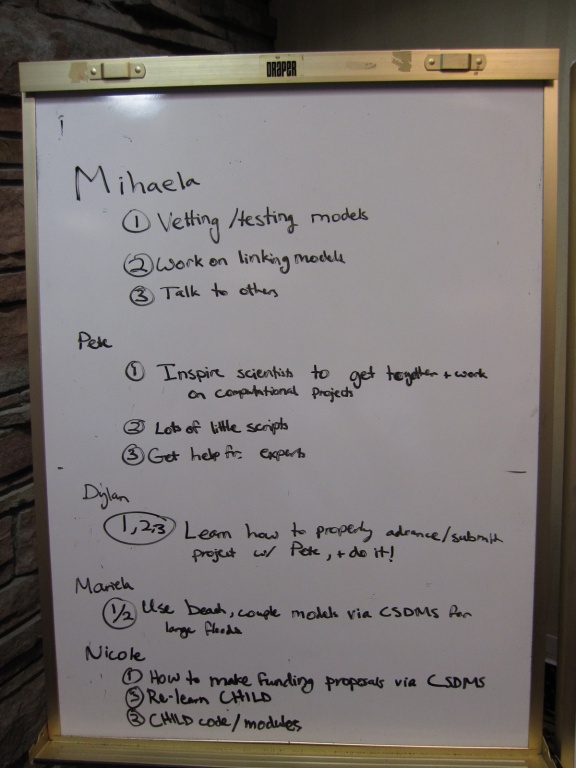 DRAPER
Mihaela
① Vetting/testing models
② Work on linking models
③ Talk to others
Pete
① Inspire scientists to get together + work
on computational projects
② Lots of little scripts
③ Get help fr: experts
Dylan
1,2,3 Learn how to properly advance/submit
project w/ Pete, + do it!
Mariela
1/2 Use beach, couple models via CSDMS for
large floods
Nicole
① How to make funding proposals via CSDMS
③ Re-learn CHILD
② CHILD code/modules